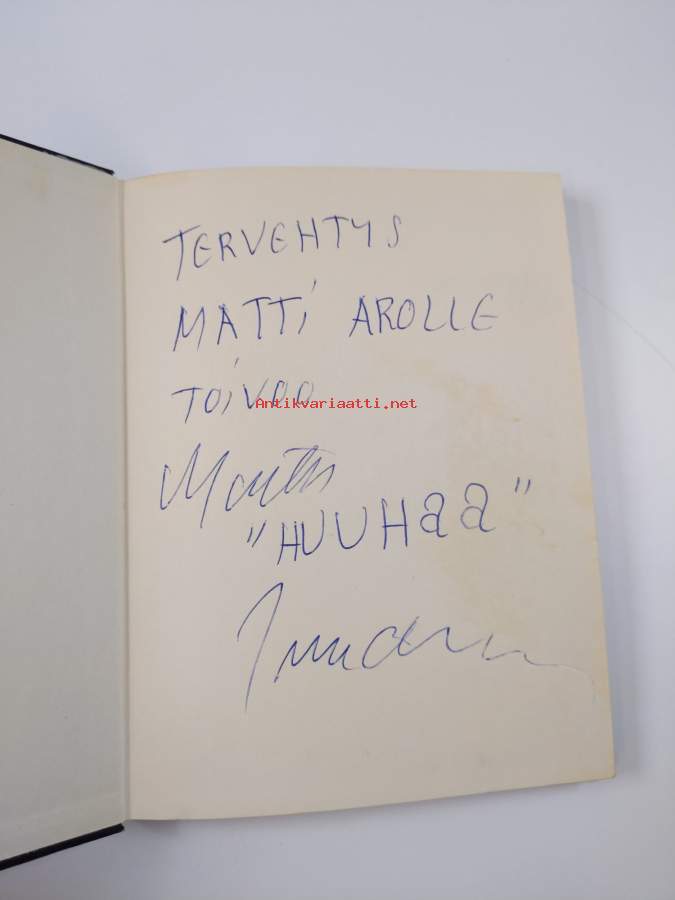 TERVEHTYS
MATTI AROLLE
TOIVOO
Antikvariaatti.net
"HUUHaa"